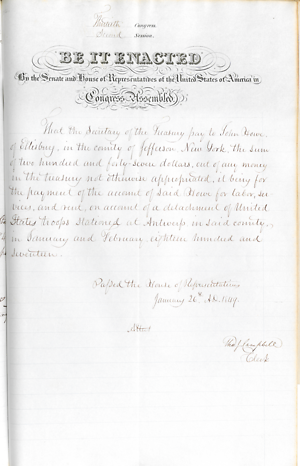 Thirtieth Congress
Second Session
BE IT ENACTED
By the Senate and House of Representatives of the United States of America in
Congress Assembled,
That the Secretary of the Treasury pay to John Howe
of Ellisburg, in the county of Jefferson, New York, the sum
of two hundred and forty-seven dollars, out of any money
in the treasury not otherwise appropriated, it being for
the payment of the account of said Howe for labor, ser-
vices, and rent, on account of a detachment of United
States troops stationed at Antwerp, in said county,
in January and February eighteen hundred and
Passed the House of Representatives
January 26th A.D. 1849.
Attest
Tho J Campbell
Clerk